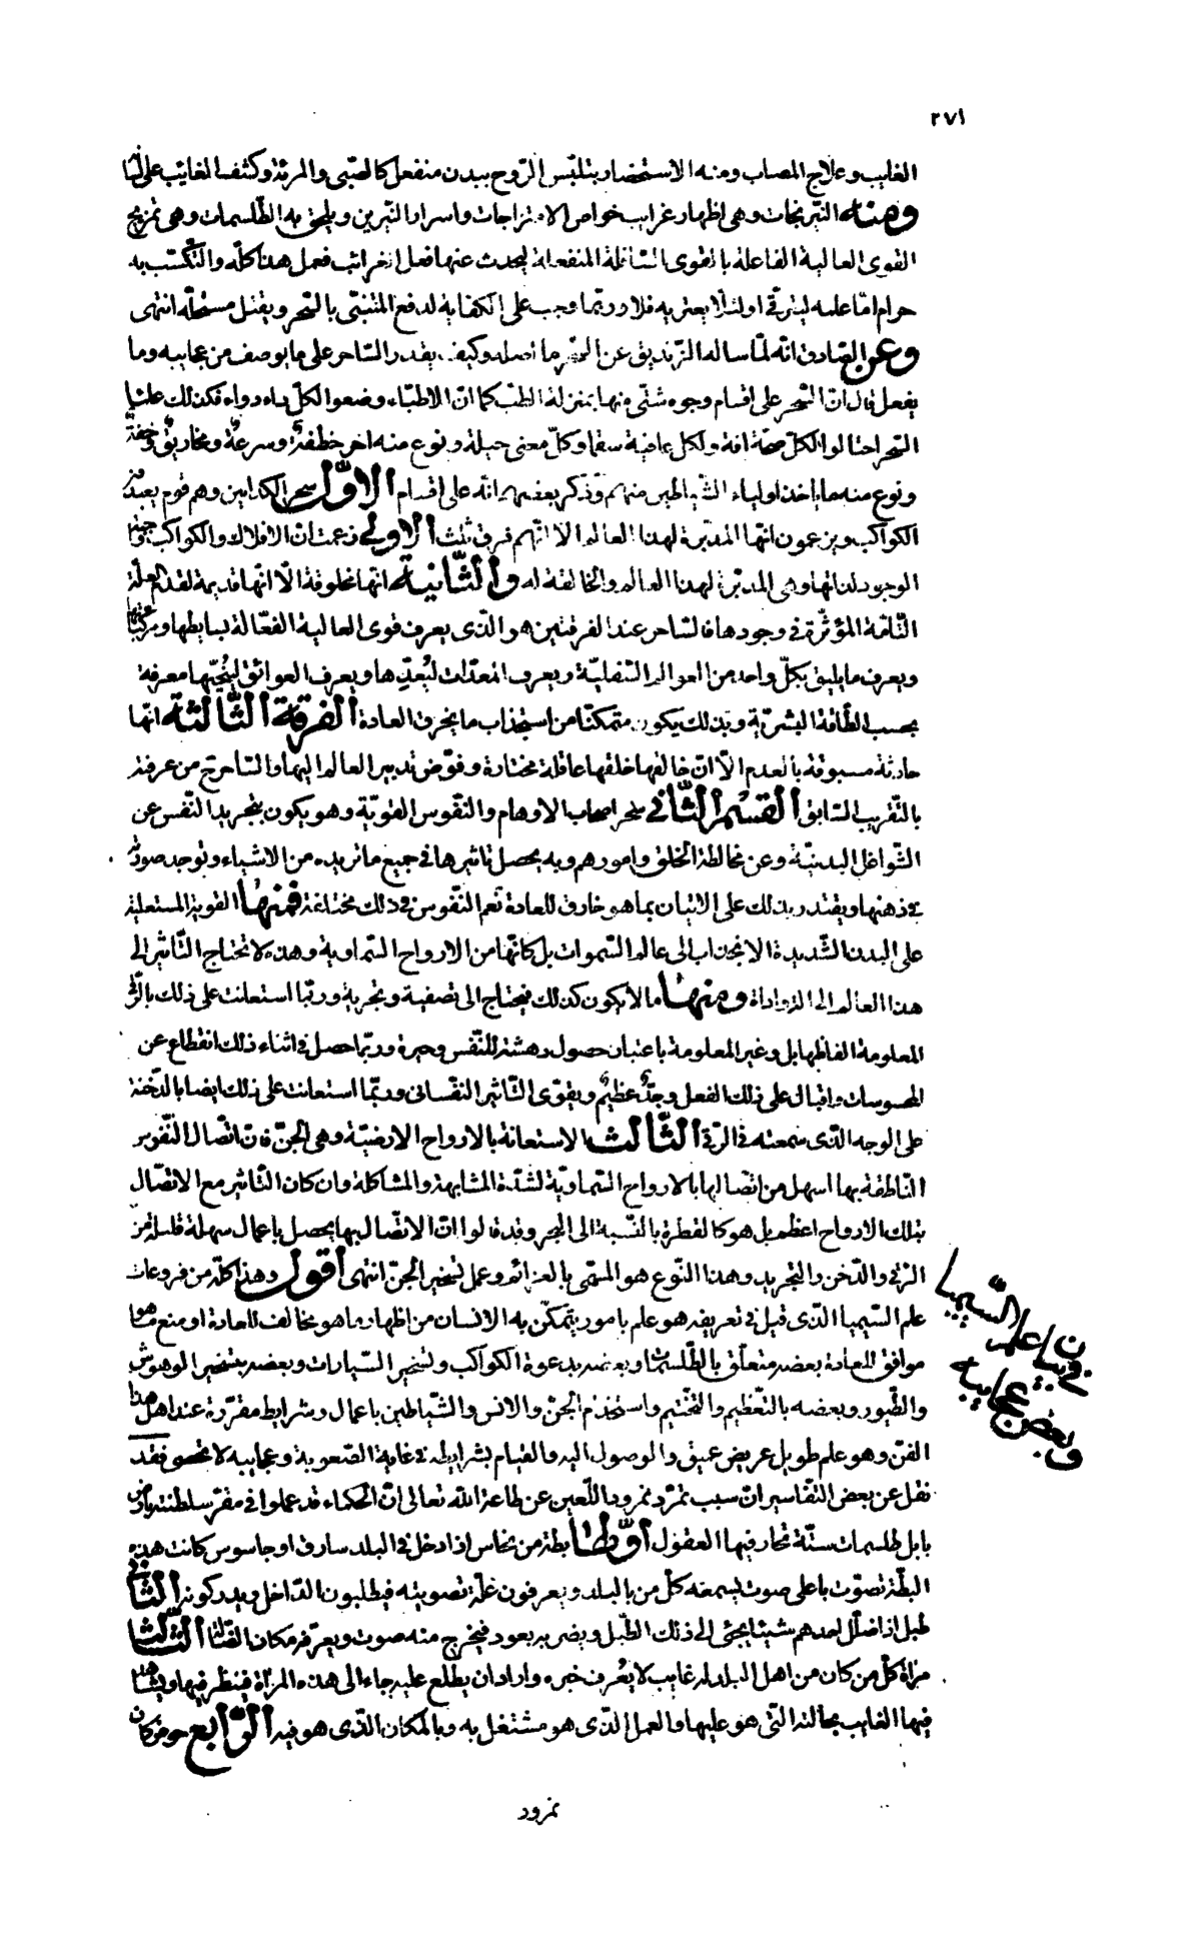 ٢٧١
الغايب وعلاج المصاب ومنه الاستحضار بتلبّس الروح ببدن منفعل كالصّبى والمرئة وكشف الغايب على
ومنه النّيرنجات وهى اظهار غرايب خواص الامتزاجات واسرار النّيرين ويلحق به الطّلسمات وهى تمزيج
القوى العالية الفاعلة بالقوى السّافلة المنفعلة ليحدث عنها فعل غرائب فعمل هذا كلّه والتّكسّب به
حرام امّا علمه ليتوقّى او لئلّا يعتريه فلا وربّما وجب على الكفاية لدفع المتنبّى بالسّحر ويقتل مستحلّه انتهى
وعن الصّادق انّه لمّا ساله الزّنديق عن السّحر ما اصله وكيف يقدر السّاحر على ما يوصف من عجايبه وما
يفعل قال انّ السّحر على اقسام وجوه شتّى منها بمنزلة الطّب كما انّ الاطبّاء وضعوا لكلّ داء دواء فكذلك علماء
السّحر احتالوا لكلّ صحّة افة ولكل عافية سقما وكلّ معنى حيلة ونوع منه اخر خطفة وسرعة ومخاريق وخفّة
ونوع منه ما ياخذ اولياء الشّياطين منهم وذكر بعضهم انّه على اقسام الاوّل سحر الكلدانين وهم قوم يعبدون
الكواكب ويزعمون انّها المدبّرة لهذا العالم الا انّهم فرق ثلث الاولى زعمت انّ الافلاك والكواكب
الوجود لذاتها وهى المدبّرة لهذا العالم والخالقة له والثّانية انّها مخلوقة الّا انّها قديمة لقدم العلّة
التّامّة المؤثّرة فى وجودها فالسّاحر عند الفرقتين هو الّذى يعرف قوى العالية الفعّالة بسايطها ومركّباتها
ويعرف ما يليق بكلّ واحد من العوالم السّفليّة ويعرف المعدّات ليُعدّها ويعرف العوائق لينُحّيها معرفة
بحسب الطّاقة البشريّة وبذلك يكون متمكّنا من استجذاب ما يخرق العادة الفرقة الثّالثة انّها
حادثة مسبوقة بالعدم الّا انّ خالقها خلقها عاقلة مختارة وفوّض تدبير العالم اليها والسّاحر ح من عرفته
بالتّقريب السّابق القسم الثّانى سحر اصحاب الاوهام والنّفوس القويّة وهو يكون بتجريد النّفس عن
الشّواغل البدنيّة وعن مخالطة الخلق وامورهم وبه يحصل تاثيرها فى جميع ما تريده من الاشياء وتوجد صورته
فى ذهنها ويقتدر بذلك على الاتيان بما هو خارق للعادة نعم النّفوس فى ذلك مختلفة فمنها القوية المستعلية
على البدن الشّديدة الانجذاب الى عالم السّموات بل كانّها من الارواح السّماوية وهذه لا تحتاج التّاثير الى
هذا العالم الى ومنها ما لا يكون كذلك فيحتاج الى تصفية وتجربة وربّما استعانت على ذلك بالرّقى
المعلومة الفاظها بل وغير المعلومة باعتبار حصول دهشة للنّفس وحيرة وربّما حصل فى اثناء ذلك انقطاع عن
المحسوسات واقبال على ذلك الفعل وجدّ عظيم ويقوّى التّاثير النّفسانى وربّما استعانت على ذلك ايضا بالدّخنة
على الوجه الّذى سمعته فى الرّقى الثّالث الاستعانة بالارواح الارضيّة وهى الجنّ فانّ اتّصال النّفوس
النّاطقة بها اسهل من اتّصالها بالارواح السّماويّة لشدّة المشابهة والمشاكلة وان كان التّاثير مع الاتّصال
بتلك الارواح اعظم بل هو كالقطرة بالنّسبة الى البحر وقد قالوا انّ الاتّصال بها يحصل باعمال سهلة قليلة من
الرّقى والدّخن والتّجريد وهذا النّوع هو المسمّى بالعزائم وعمل تسخير الجنّ انتهى اقول وهذا كلّه من فروعات
علم السّيميا الّذى قيل فى تعريفه هو علم بامور يتمكّن به الانسان من اظهار ما هو مخالف للعادة او منع ما هو
موافق للعادة بعضه متعلّق بالطّلسمات وبعضه بدعوة الكواكب وتسخير السّيارات وبعضه بتسخير الوحوش
والطّيور وبعضه بالتّعظيم والتّختيم واستخدام الجنّ والانس والشّياطين باعمال وشرايط مقرّرة عند اهل هذا
الفنّ وهو علم طويل عريض عميق والوصول اليه والقيام بشرايطه فى غاية الصّعوبة وعجايبه لا تحصى فقد
نقل عن بعض التّفاسير انّ سبب تمرّد نمرود اللّعين عن طاعة الله تعالى انّ الحكماء قد عملوا فى مقرّ سلطنته بارض
بابل طلسمات ستّة تحار فيها العقول اوّلها بطّة من نحاس اذا دخل فى البلد سارق او جاسوس كانت هذه
البطّة تصوّت باعلى صوت يسمعه كلّ من بالبلد ويعرفون علّة تصويته فيطلبون الدّاخل ويدركونه الثّانى
طبل اذا ضلّ لاحدهم شيئا يجئ الى ذلك الطّبل ويضربه بعود فيخرج منه صوت ويعرّفه مكان الضّالّة الثّالث
مراة كلّ من كان من اهل البلد له غايب لا يعُرف خبره واراد ان يطلع عليه جاء الى هذه المراة فينظر فيها ويشاهد
فيها الغايب بحالته الّتى هو عليها والعمل الّذى هو مشتغل به وبالمكان الّذى هو فيه الرّابع حوض كان
فى بيان علم السّيميا
وبعض عجايبه
نمرود